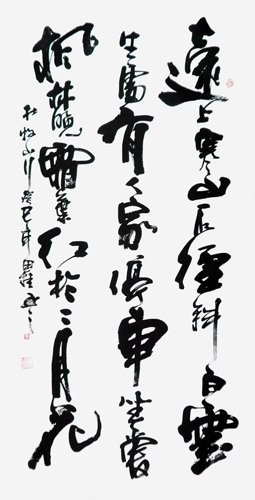 遠上寒山石徑斜白雲
生處有人家停車坐愛
楓林晚霜葉红於二月花
杜牧山行癸巳年